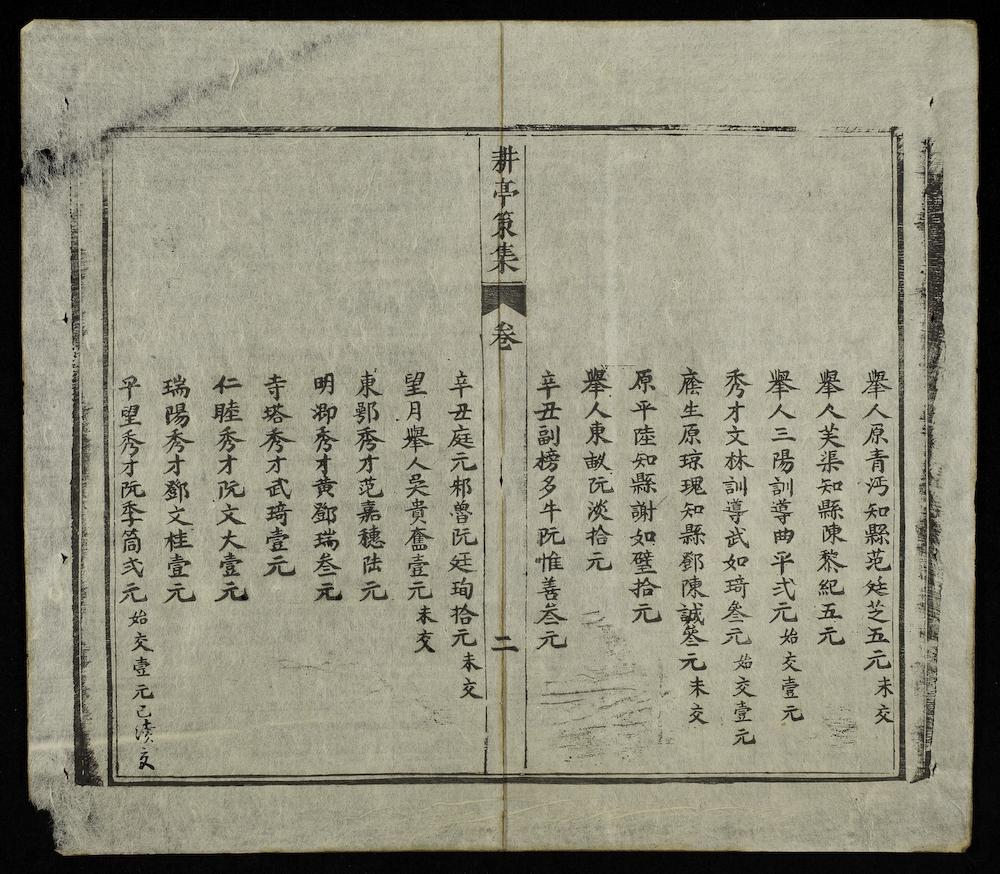 舉人原青沔知縣范廷芝五元未交
舉人芙渠知縣陳黎紀五元
舉人三陽訓導曲平弍元始交壹元
秀才文林訓導武如琦叄元始交壹元
廕生原琼瑰知縣鄧陳誠叄元未交
原平陸知縣謝如璧拾元
舉人東畝阮淡拾元
辛丑副榜多牛阮惟善叄元
耕亭策集
卷
二
辛丑庭元邾曾阮廷珣拾元未交
望月舉人吳貴奮壹元未交
東鄂秀才范嘉穗陆元
明鄉秀才黄鄧瑞叄元
寺塔秀才武琦壹元
仁睦秀才阮文大壹元
瑞陽秀才鄧文桂壹元
平望秀才阮季筒弍元始交壹元已交